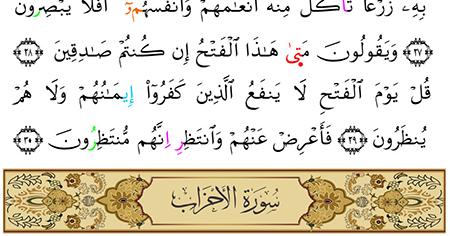 بِهِۦ زَرْعًا تَأْكُلُ مِنْهُ أَنْعَٰمُهُمْ وَأَنفُسُهُمُۥٓ أَفَلَا يُبْصِرُونَ
﴿٢٧﴾ وَيَقُولُونَ مَتَىٰ هَٰذَا ٱلْفَتْحُ إِن كُنتُمْ صَٰدِقِينَ ﴿٢٨﴾
قُلْ يَوْمَ ٱلْفَتْحِ لَا يَنفَعُ ٱلَّذِينَ كَفَرُوٓا۟ إِيمَٰنُهُمْ وَلَا هُمْ
يُنظَرُونَ ﴿٢٩﴾ فَأَعْرِضْ عَنْهُمْ وَٱنتَظِرِ إِنَّهُم مُّنتَظِرُونَ ﴿٣٠﴾
سُورَةُ الأَحْزَابِ